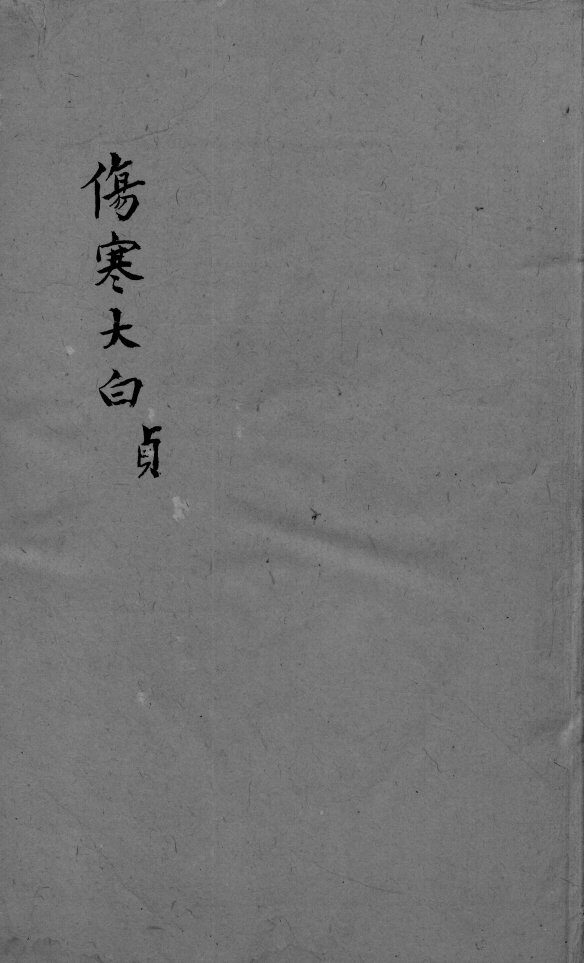 傷寒大白
貞